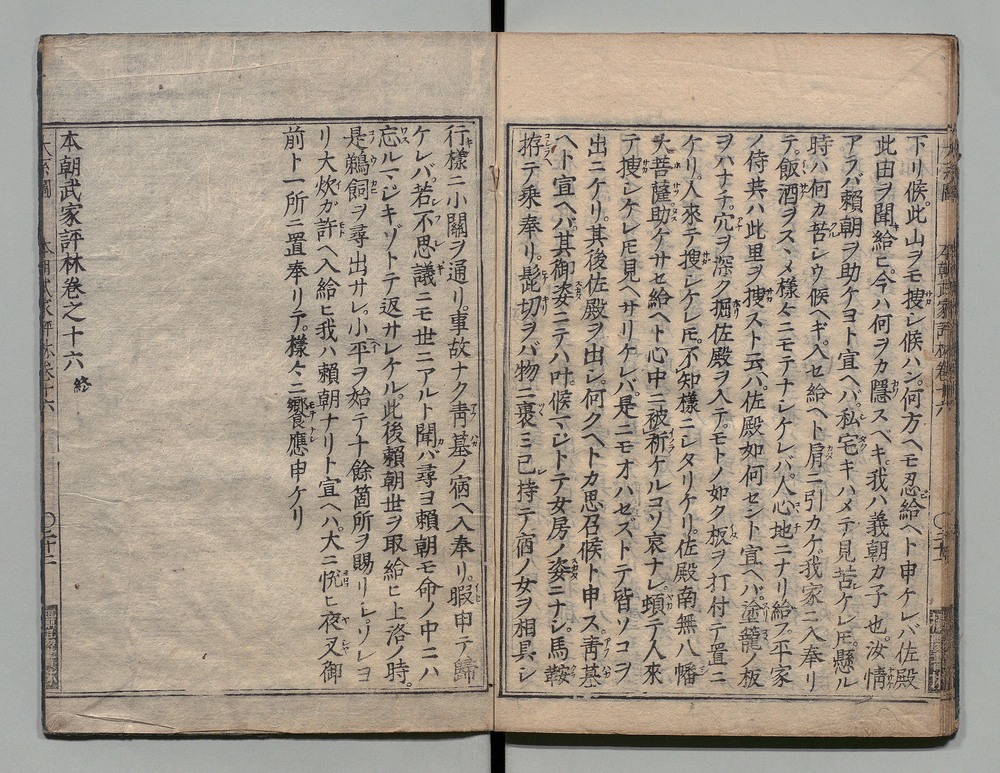 下リ候。此山ヲモ捜シ候ハン。何方ヘモ忍給ヘト申ケレバ佐殿
此由ヲ聞給ヒ。今ハ何ヲカ隱スベキ。我ハ義朝カ子也。汝情
アラバ賴朝ヲ助ケヨト宣ヘバ。私宅キハメテ見苦ケレ𪜈。懸ル
時ハ何カ苦シウ候ヘキ。入セ給ヘト肩ニ引カケ。我家ニ入奉リ
テ。飯酒ヲスヽメ樣々ニモテナシケレバ。人心地ニナリ給フ。平家
ノ侍共ハ此里ヲ捜スト云バ。佐殿如何セント宣ヘバ。塗籠ノ板
ヲハナチ。穴ヲ深ク掘佐殿ヲ入テ。モトノ如ク板ヲ打付テ置ニ
ケリ。人來テ捜シケレ𪜈。不知樣ニシタリケリ。佐殿南無八幡
大菩薩助ケサセ給ヘト心中ニ被祈ケルコソ哀ナレ。頓テ人來
テ捜シケレ𪜈見ヘサリケレバ。是ニモオハセズトテ皆ソコヲ
出ニケリ。其後佐殿ヲ出シ。何クヘトカ思召候ト申ス。靑墓
ヘト宣ヘバ。其御姿ニテハ叶候マシトテ女房ノ姿ニナシ。馬鞍
拵テ乘奉リ。髭切ヲバ物ニ裹ミ己持テ。宿ノ女ヲ相具シ
行樣ニ小關ヲ通リ。事故ナク靑墓ノ宿ヘ入奉リ。暇申テ歸
ケレバ。若不思議ニモ世ニアルト聞バ尋ヨ。賴朝モ命ノ中ニハ
忘ルマシキゾトテ返サレケル。此後賴朝世ヲ取給ヒ上洛ノ時。
是鵜飼ヲ尋出サレ。小平ヲ始テ十餘箇所ヲ賜リシ。ソレヨ
リ大炊ガ許ヘ入給ヒ。我ハ賴朝ナリト宣ヘハ。大ニ悅ヒ夜叉御
前ト一所ニ置奉リテ。樣々ニ饗應申ケリ
本朝武家評林卷之十六終
大系圖 本朝武家評林卷十六 〇二十二